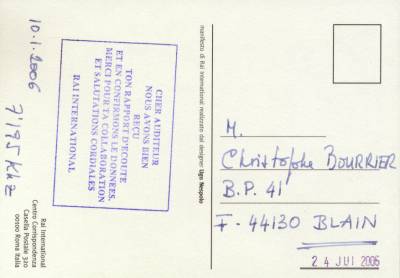 10.1.2006
7195 KHz
CHER AUDITEUR
NOUS AVONS BIEN
REÇU
TON RAPPORT D'ÉCOUTE
ET EN CONFIRMONS LE DONNEES.
MERCI POUR TA COLLABORATION
ET SALUTATIONS CORDIALES
RAI INTERNATIONAL
Rai International
Centro Corrispondenza
Casella Postale 320
00100 Roma Italia
manifesto di Rai International realizzato dal designer Ugo Nespolo
M.
Christophe BOURRIER
B.P. 41
F-44130 BLAIN
24 JUI 2006